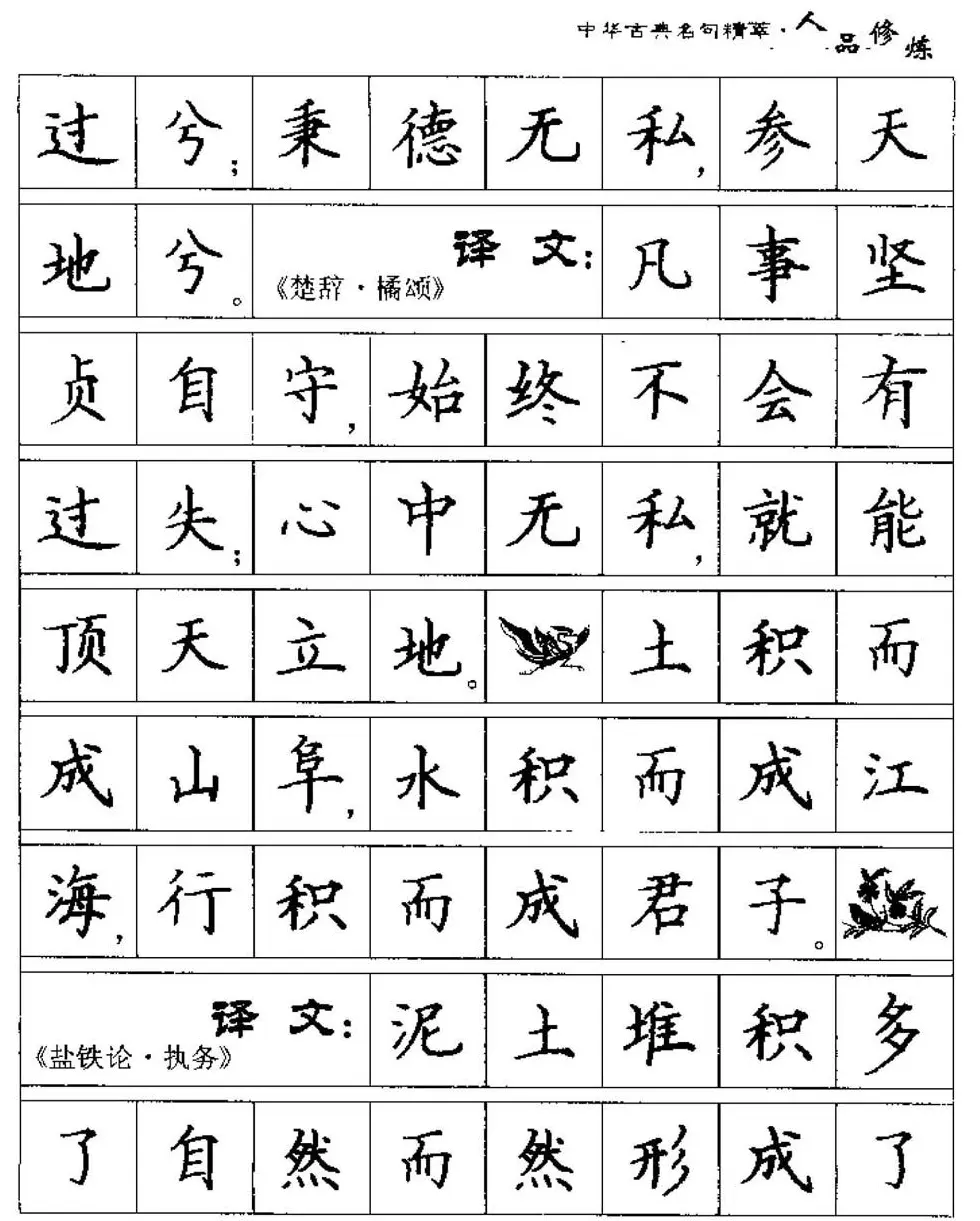 中华古典名句精萃·人品修炼
过兮；秉德无私，参天
地兮。《楚辞·橘颂》译文：凡事坚
贞自守，始终不会有
过失；心中无私，就能
顶天立地。土积而
成山阜，水积而成江
海，行积而成君子。
《盐铁论·执务》译文：泥土堆积多
了自然而然形成了